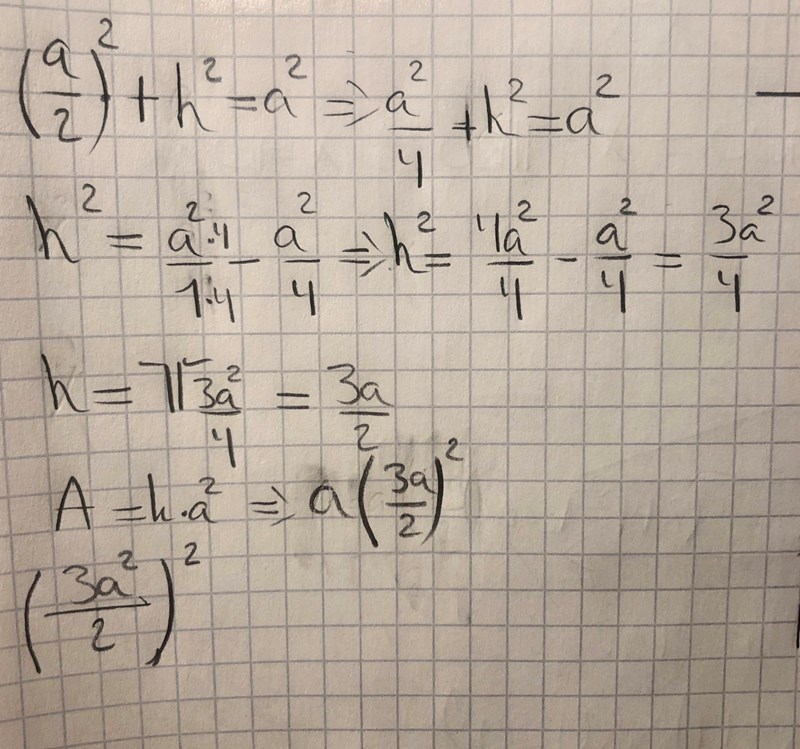 (a/2)² + h² = a² ⇒ a²/4 + h² = a²
h² = a²·4/1·4 − a²/4 ⇒ h² = 4a²/4 − a²/4 = 3a²/4
h = √3a²/4 = 3a/2
A = h·a² ⇒ a(3a/2)²
(3a²/2)²